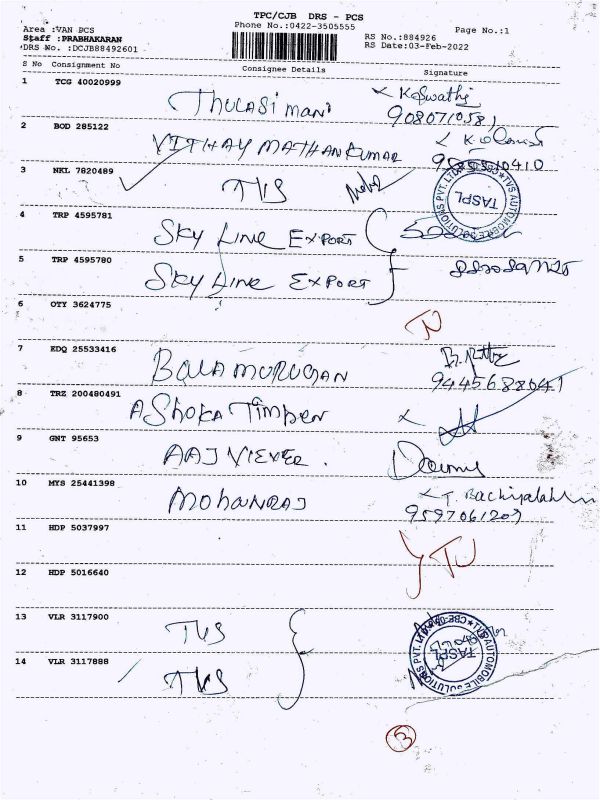 TPC/CJB DRS - PCS
Area :VAN PCS
Phone No.:0422-3505555
Page No.:1
Staff :PRABHAKARAN
RS No.:884926
DRS No. :DCJB88492601
RS Date:03-Feb-2022
S No Consignment No Consignee Details Signature
1 TCG 40020999 Thulasi mani K. Swathi
9080710581
2 BOD 285122 VITHAY MATHAN KUMAR
3 NKL 7820489 TVS
TVS AUTOMOBILE SOLUTIONS PVT. LTD.
TASPL
4 TRP 4595781 SKY Line Export
5 TRP 4595780 SKY Line Export
6 OTY 3624775
7 EDQ 25533416 BALAMURUGAN
9445688041
8 TRZ 200480491 AShoka Timber
9 GNT 95653 AAJ VIEVER.
10 MYS 25441398 MOhanRAJ
9597061209
11 HDP 5037997
12 HDP 5016640
13 VLR 3117900 TVS
TVS AUTOMOBILE SOLUTIONS PVT. LTD.
TASPL
14 VLR 3117888 TVS
3